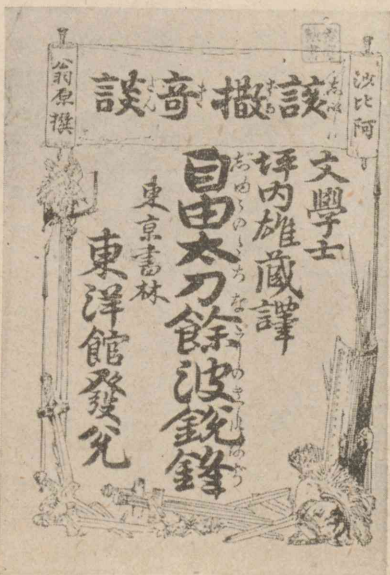 沙比阿
翁原撰
該撒竒談
文學士
坪内雄蔵譯
自由太刀餘波鋭鋒
東京書林
東洋館發兌